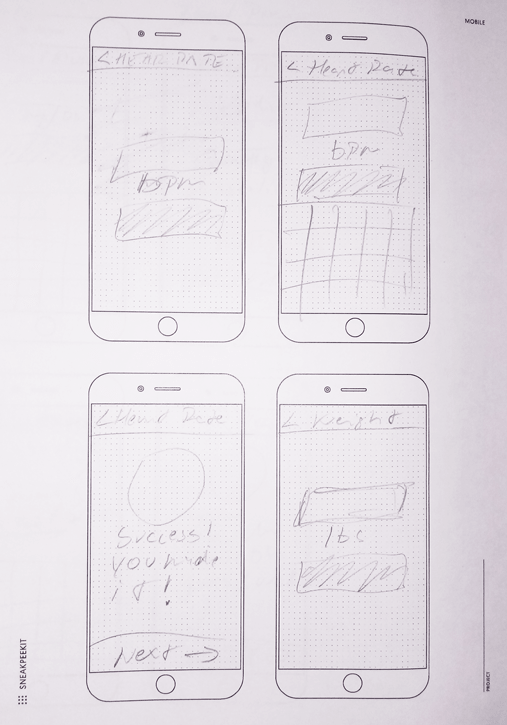 MOBILE
< HEART RATE
bpm
< Heart Rate
bpm
< Heart Rate
Success!
you made
it!
Next →
< Weight
lbs
SNEAKPEEKIT
PROJECT